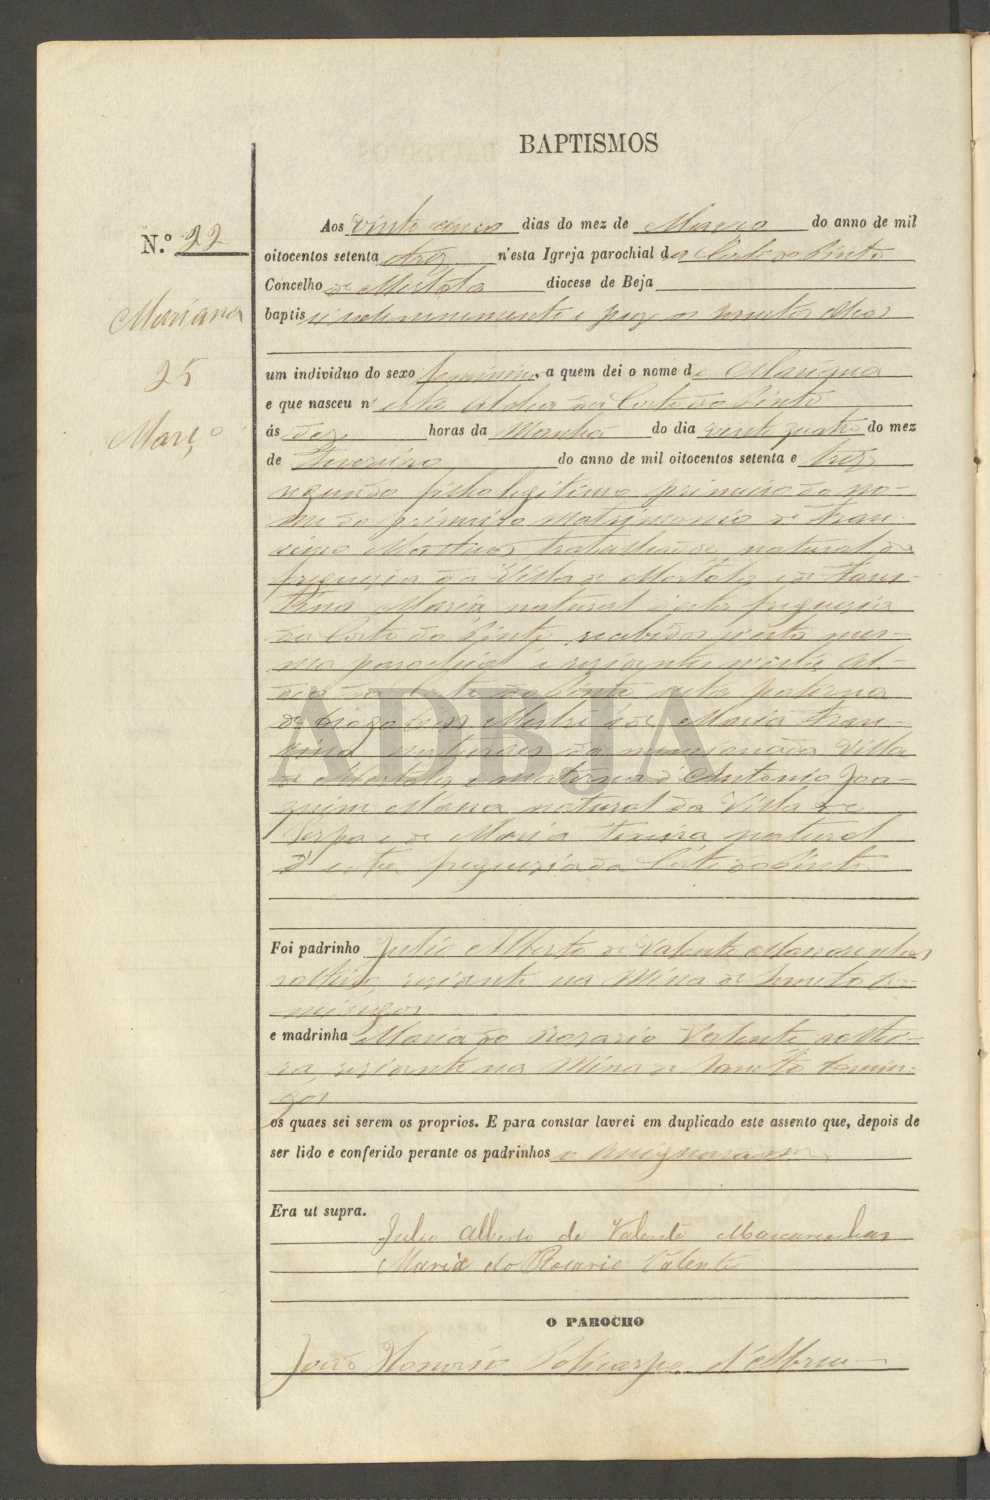 BAPTISMOS
N.º 22
Marianna
25
Março
Aos vinte cinco dias do mez de Março do anno de mil
oitocentos setenta e trez n'esta Igreja parochial da Corte do Pinto
Concelho de Mertola diocese de Beja
baptisei solemnemente e puz os Santos oleos
um individuo do sexo feminino, a quem dei o nome de Marianna
e que nasceu n'esta Aldea da Corte do Pinto
ás dez horas da Manhã do dia vinte quatro do mez
de Fevereiro do anno de mil oitocentos setenta e trez
segundo filho legitimo primeiro do no-
me do primeiro matrimonio de Fran-
cisco Martins trabalhador, natural da
freguezia da Villa de Mertola e de Faus-
tina Maria natural d'esta freguezia
da Corte do Pinto, recebidos n'esta mes-
ma parochia e rezidentes n'esta Al-
dea da Corte do Pinto neta paterna
de Maria Fran-
da mencionada Villa
de Mertola, e materna d'Antonio Joa-
quim natural da Villa de
Serpa e de Maria natural
d'esta freguezia da Corte do Pinto
Foi padrinho Julio Alberto de Valente Mascarenhas
solteiro, rezidente na Mina de São Do-
mingos
e madrinha Maria do Rosario Valente soltei-
ra, rezidente na Mina de Domin-
gos
os quaes sei serem os proprios. E para constar lavrei em duplicado este assento que, depois de
ser lido e conferido perante os padrinhos o assignaram
Era ut supra.
Julio Alberto de Valente Mascarenhas
Maria do Rosario Valente
O PAROCHO
João Honorio Policarpo d'Abreu
ADBJA